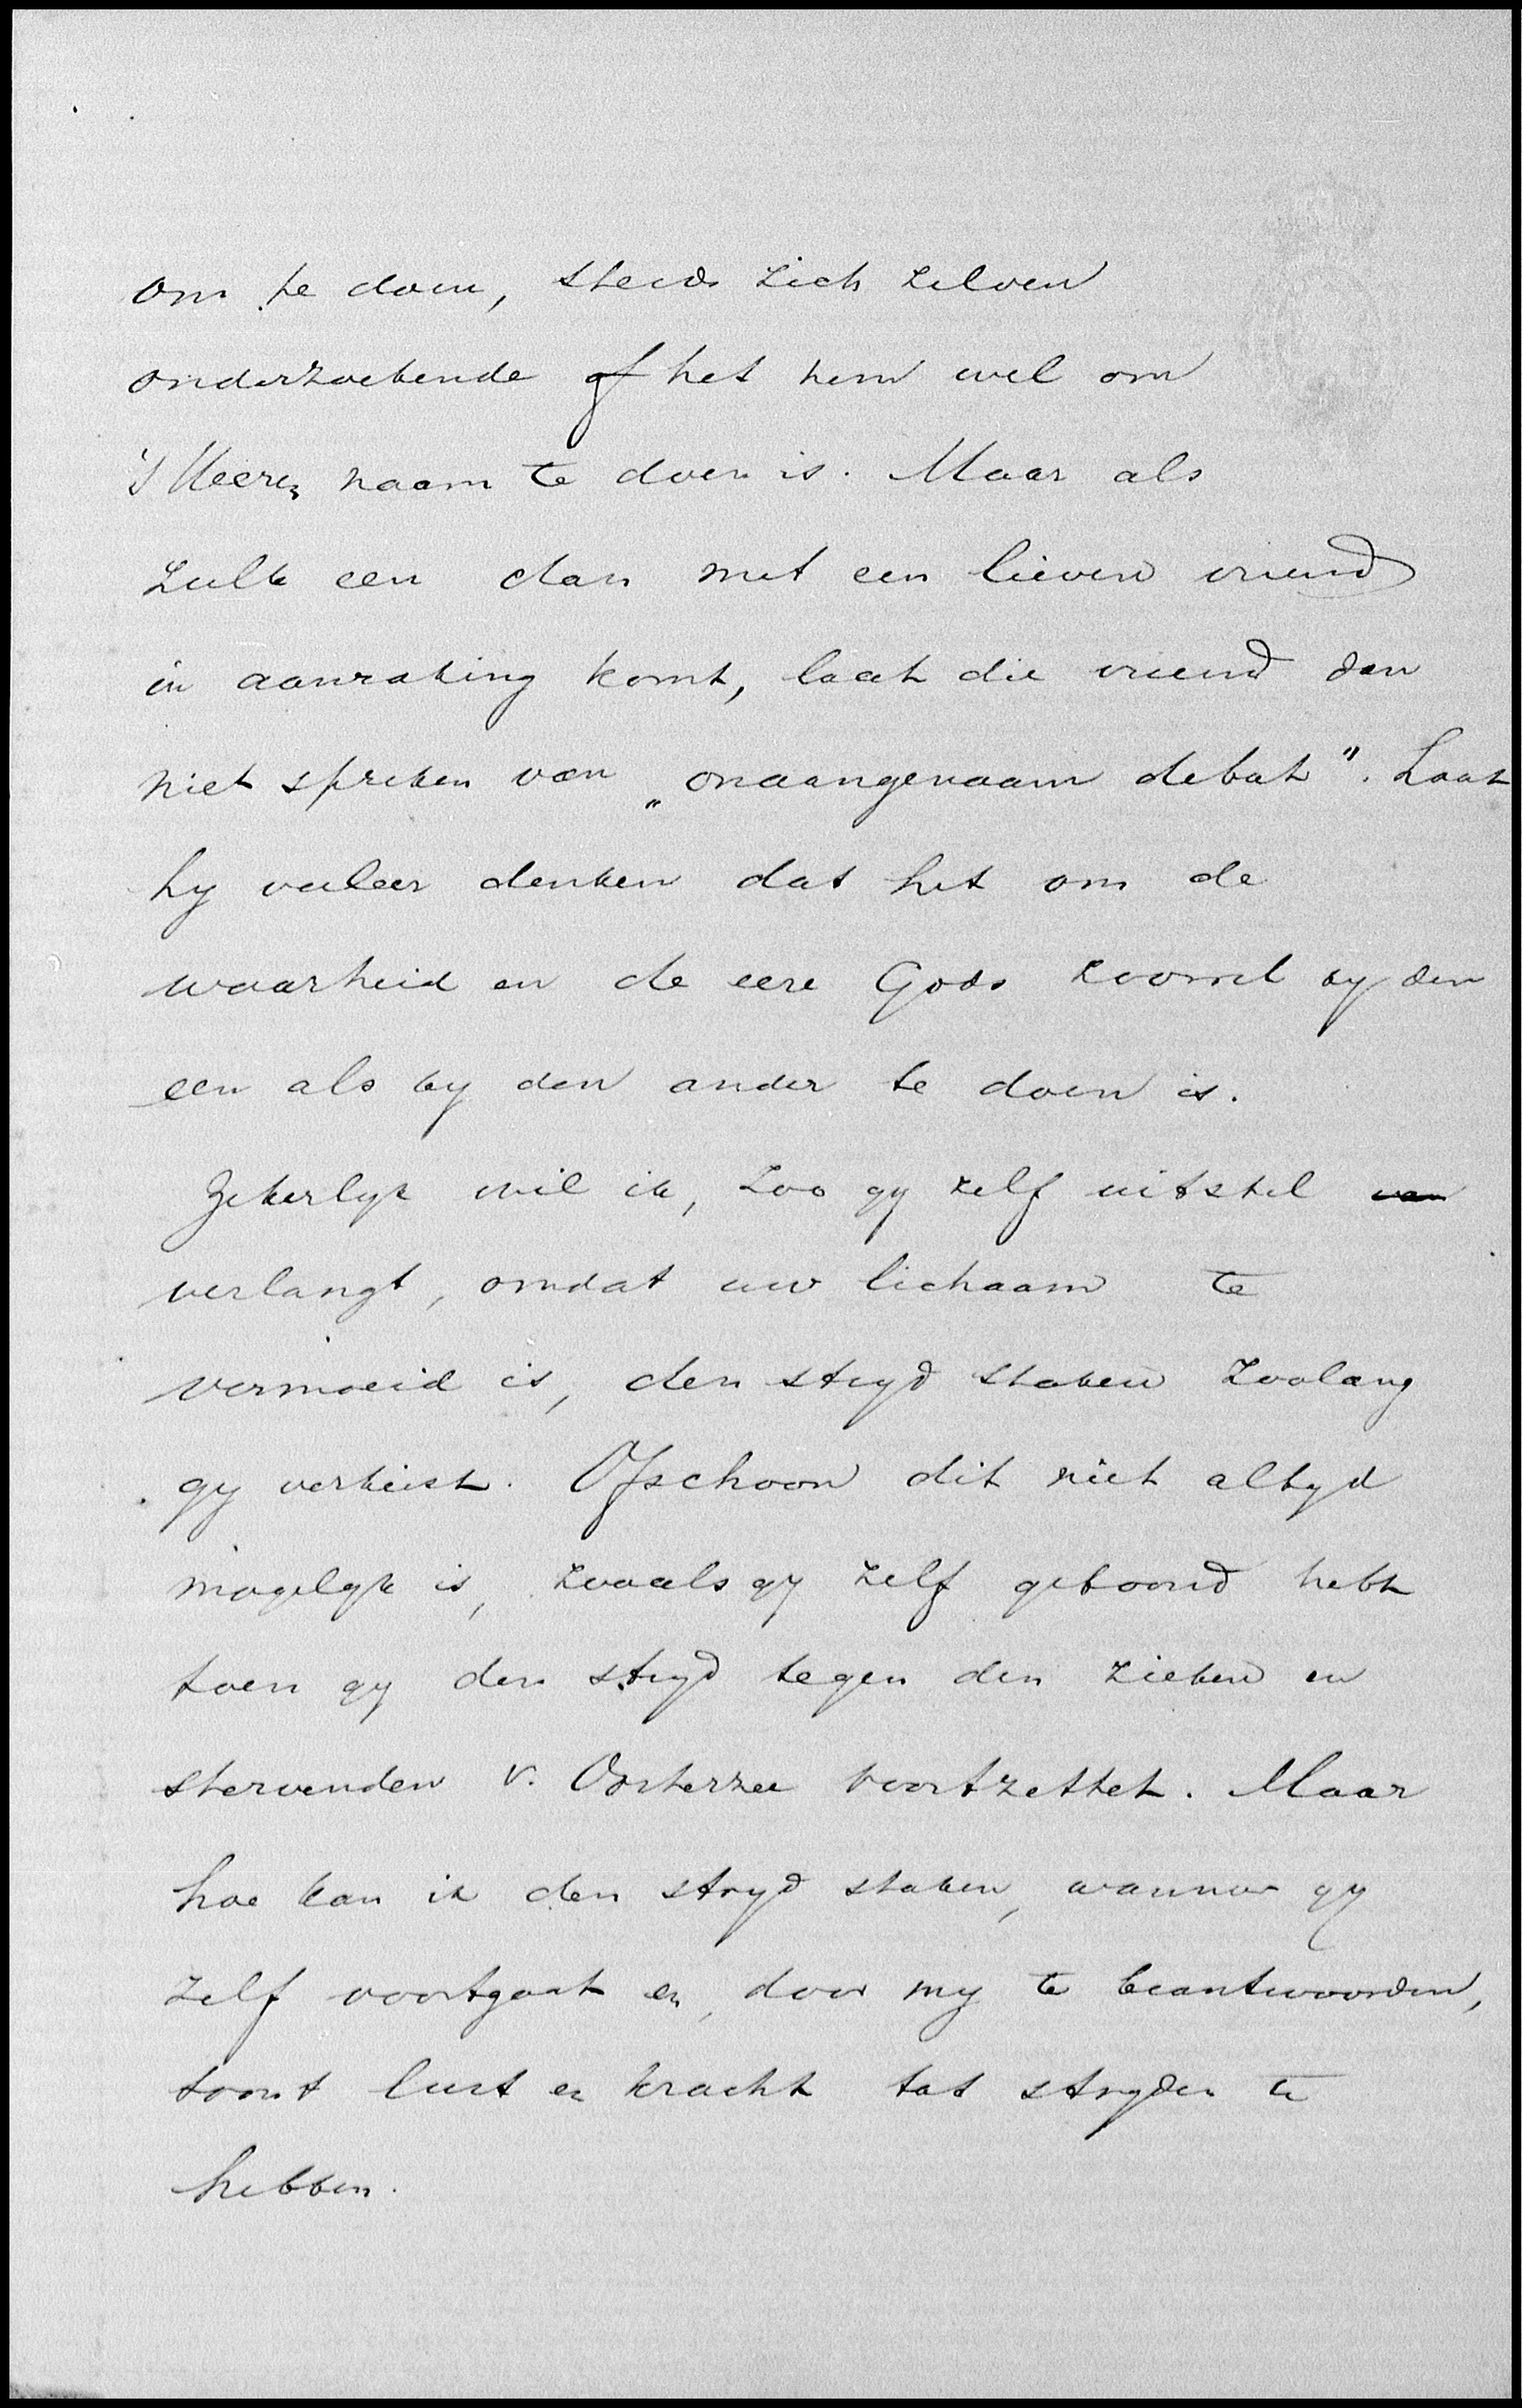 om te doen, steeds zich zelven
onderzoekende of het hem wel om
's Heeren naam te doen is. Maar als
zulk een dan met een lieven vriend
in aanraking komt, laat die vriend dan
niet spreken van „onaangenaam debat". Laat
hy veeleer denken dat het om de
waarheid en de eere Gods zoowel by den
een als by den ander te doen is.
Zekerlyk wil ik, zoo gy zelf uitstel van
verlangt, omdat uw lichaam te
vermoeid is, den stryd staken zoolang
gy verkiest. Ofschoon dit niet altyd
mogelyk is, zooals gy zelf getoond hebt
toen gy den stryd tegen den zieken en
stervenden v. Oosterzee voortzettet. Maar
hoe kan ik den stryd staken, wanneer gy
zelf voortgaat en, door my te beantwoorden,
toont lust en kracht tot stryden te
hebben.